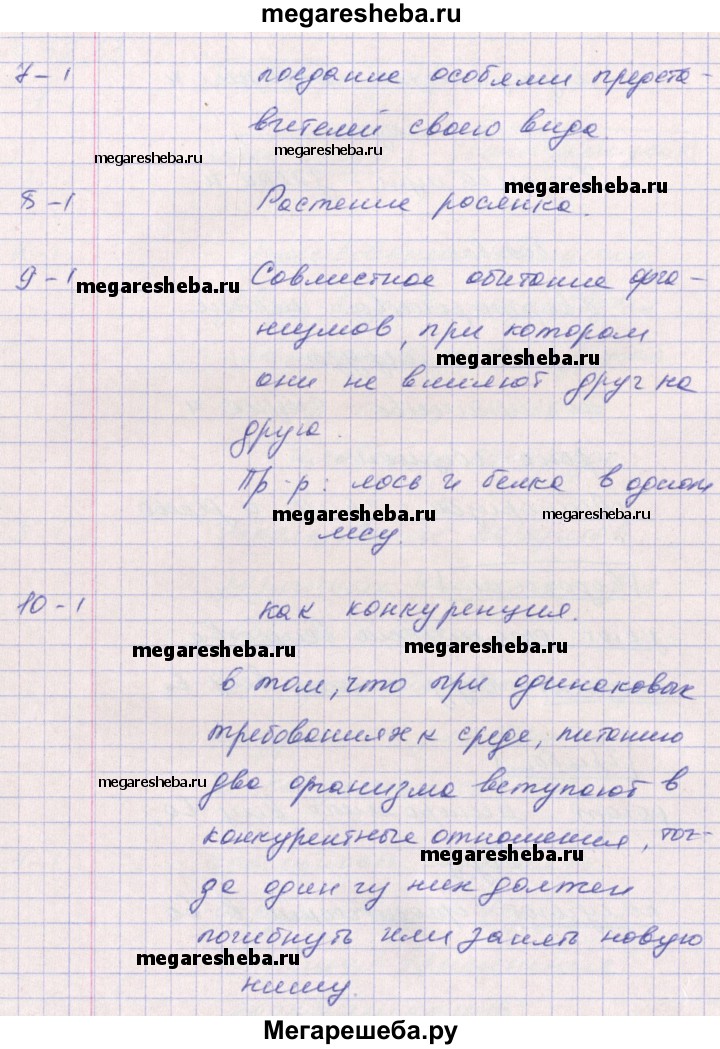 megaresheba.ru
7-1 поедание особями предста-
вителей своего вида.
megaresheba.ru megaresheba.ru
megaresheba.ru
8-1 Растение росянка.
9-1 Совместное обитание орга-
megaresheba.ru
низмов, при котором
megaresheba.ru
они не влияют друг на
друга
Пр-р: лось и белка в одном
megaresheba.ru megaresheba.ru
лесу.
10-1 как конкуренция.
megaresheba.ru megaresheba.ru
в том, что при одинаковых
требованиях к среде, питанию
megaresheba.ru два организма вступают в
конкурентные отношения, тог-
megaresheba.ru
да один из них должен
погибнуть или занять новую
megaresheba.ru
нишу.
Мегарешеба.ру